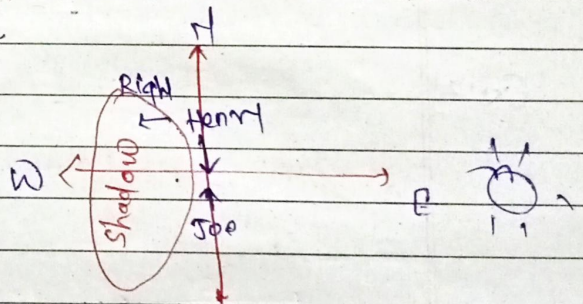 N
Right
Henry
W
Shadow
E
Joe